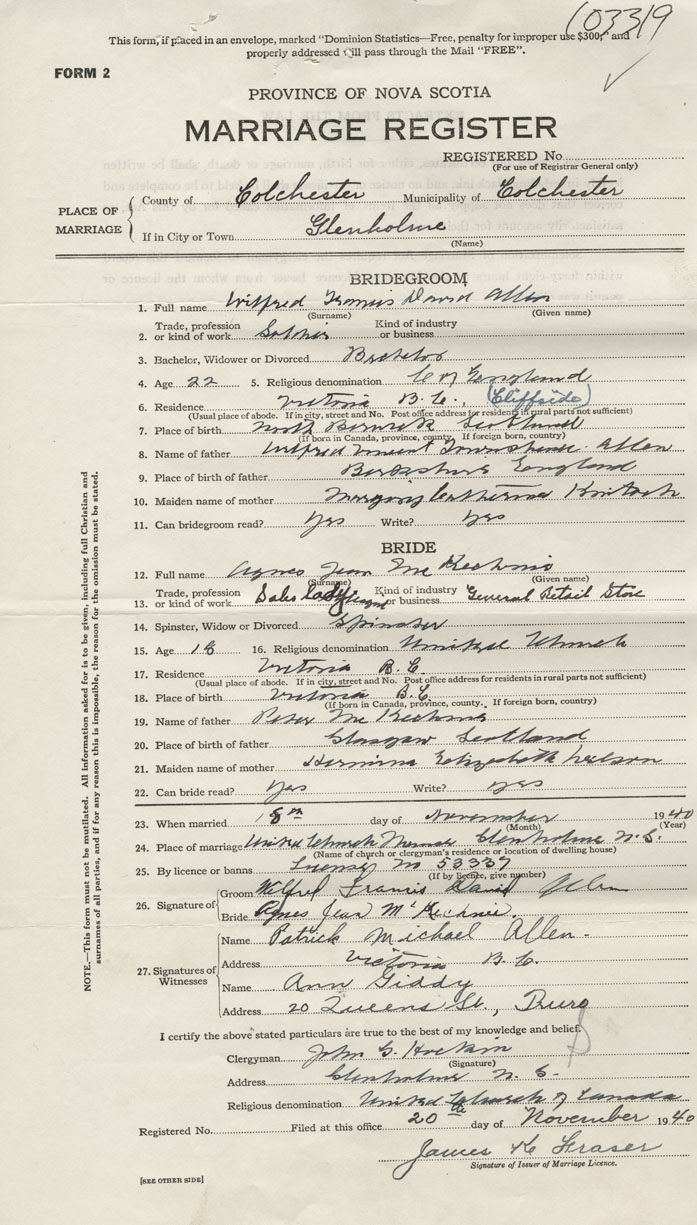 103319
This form, if placed in an envelope, marked "Dominion Statistics—Free, penalty for improper use $300," and
properly addressed will pass through the Mail "FREE".
FORM 2
PROVINCE OF NOVA SCOTIA
MARRIAGE REGISTER
REGISTERED No.
(For use of Registrar General only)
PLACE OF MARRIAGE
County of Colchester Municipality of Colchester
If in City or Town Glenholme
(Name)
BRIDEGROOM
1. Full name Wilfred Francis David Allen
(Surname) (Given name)
Trade, profession Kind of industry
2. or kind of work Soldier or business
3. Bachelor, Widower or Divorced Bachelor
4. Age 22 5. Religious denomination C of England
6. Residence Victoria B.C., (Cliffside)
(Usual place of abode. If in city, street and No. Post office address for residents in rural parts not sufficient)
7. Place of birth North Berwick Scotland
(If born in Canada, province, county. If foreign born, country)
8. Name of father Wilfred Vincent Allen
9. Place of birth of father England
10. Maiden name of mother Catherine
11. Can bridegroom read? Yes Write? Yes
BRIDE
12. Full name Agnes Jean McKechnie
(Surname) (Given name)
Trade, profession Kind of industry
13. or kind of work Sales Lady or business General Retail Store
14. Spinster, Widow or Divorced Spinster
15. Age 18 16. Religious denomination United Church
17. Residence Victoria B.C.
(Usual place of abode. If in city, street and No. Post office address for residents in rural parts not sufficient)
18. Place of birth Victoria B.C.
(If born in Canada, province, county. If foreign born, country)
19. Name of father Peter McKechnie
20. Place of birth of father Glasgow Scotland
21. Maiden name of mother Elizabeth
22. Can bride read? Yes Write? Yes
23. When married 18th day of November 1940
(Month) (Year)
24. Place of marriage United Church Manse Glenholme N.S.
(Name of church or clergyman's residence or location of dwelling house)
25. By licence or banns License No 53337
(If by licence, give number)
26. Signature of
Groom Wilfred Francis David Allen
Bride Agnes Jean McKechnie.
27. Signatures of Witnesses
Name Patrick Michael Allen
Address Victoria B.C.
Name Ann Giddy
Address 20 Queens St., Truro
I certify the above stated particulars are true to the best of my knowledge and belief.
Clergyman John G. Hockin
(Signature)
Address Glenholme N.S.
Religious denomination United Church of Canada
Registered No. Filed at this office 20th day of November 1940
James K Fraser
Signature of Issuer of Marriage Licence.
[SEE OTHER SIDE]
NOTE.—This form must not be mutilated. All information asked for is to be given, including full Christian and
surnames of all parties, and if for any reason this is impossible, the reason for the omission must be stated.